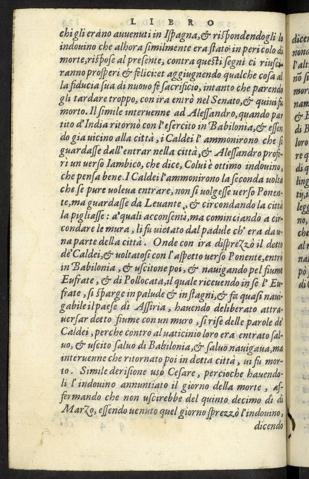 LIBRO
chi gli erano auuenuti in Ispagna, & rispondendogli lo
indouino che alhora similmente era stato in pericolo di
morte, rispose al presente, contra questi segni ci riusci-
ranno prosperi & felici: et aggiugnendo qualche cosa al
la fiducia sua di nuouo fe sacrificio, intanto che parendo
gli tardare troppo, con ira entrò nel Senato, & quiui fu
morto. Il simile interuenne ad Alessandro, quando par
tito d'India ritornò con l'esercito in Babilonia, & essen
do gia uicino alla città, i Caldei l'ammonirono che si
guardasse dall'entrar nella città, & Alessandro profe-
rì un uerso Iambico, che dice, Colui è ottimo indouino,
che pensa bene. I Caldei l'ammonirono la seconda uolta
che se pure uoleua entrare, non si uolgesse uerso Ponen-
te, ma guardasse da Leuante, & circondando la città
la pigliasse: a' quali acconsenti, ma cominciando a cir-
condare le mura, li fu uietato dal padule ch'era da u-
na parte della città. Onde con ira disprezzò il detto
de' Caldei, & uoltatosi con l'aspetto uerso Ponente, entrò
in Babilonia, & uscitone poi, & nauigando pel fiume
Eufrate, & di Pollocata, il quale riceuendo in se l'Eu-
frate, si sparge in palude & in stagni, & fa quasi naui-
gabile il paese di Assiria, hauendo deliberato attra-
uersar detto fiume con un muro, si rise delle parole de'
Caldei, perche contro al uaticinio loro era entrato sal-
uo, & uscito saluo di Babilonia, & saluo nauigaua, ma
interuenne che ritornato poi in detta città, ui fu mor-
to. Simile derisione usò Cesare, percioche hauendo-
li l'indouino annuntiato il giorno della morte, af-
fermando che non uscirebbe del quinto decimo di di
Marzo, essendo uenuto quel giorno sprezzò l'indouino,
dicendo